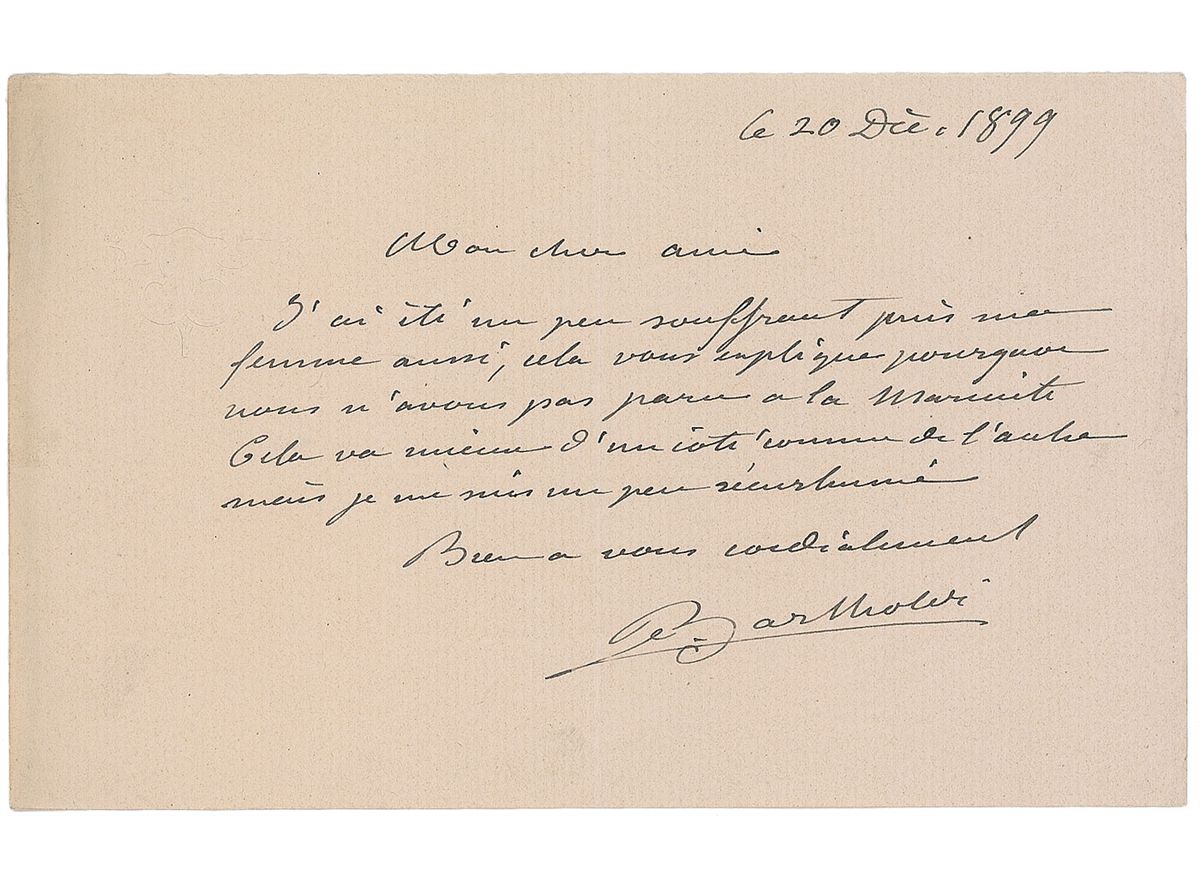 le 20 Déc. 1899
Mon cher ami
J'ai été un peu souffrant puis ma
femme aussi, cela vous explique pourquoi
nous n'avons pas paru a la Marmite
Cela va mieux d'un coté comme de l'autre
mais je me suis un peu réenrhumé
Bien a vous cordialement
Bartholdi